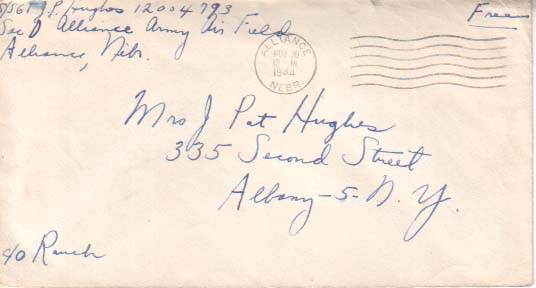 S/SGT J.P. Hughes 12004793
Sec D Alliance Army Air Field
Alliance, Nebr.
Free
ALLIANCE
NOV 20
12 M
1944
NEBR.
Mrs J Pat Hughes
335 Second Street
Albany-5-N.Y.
c/o Rauch